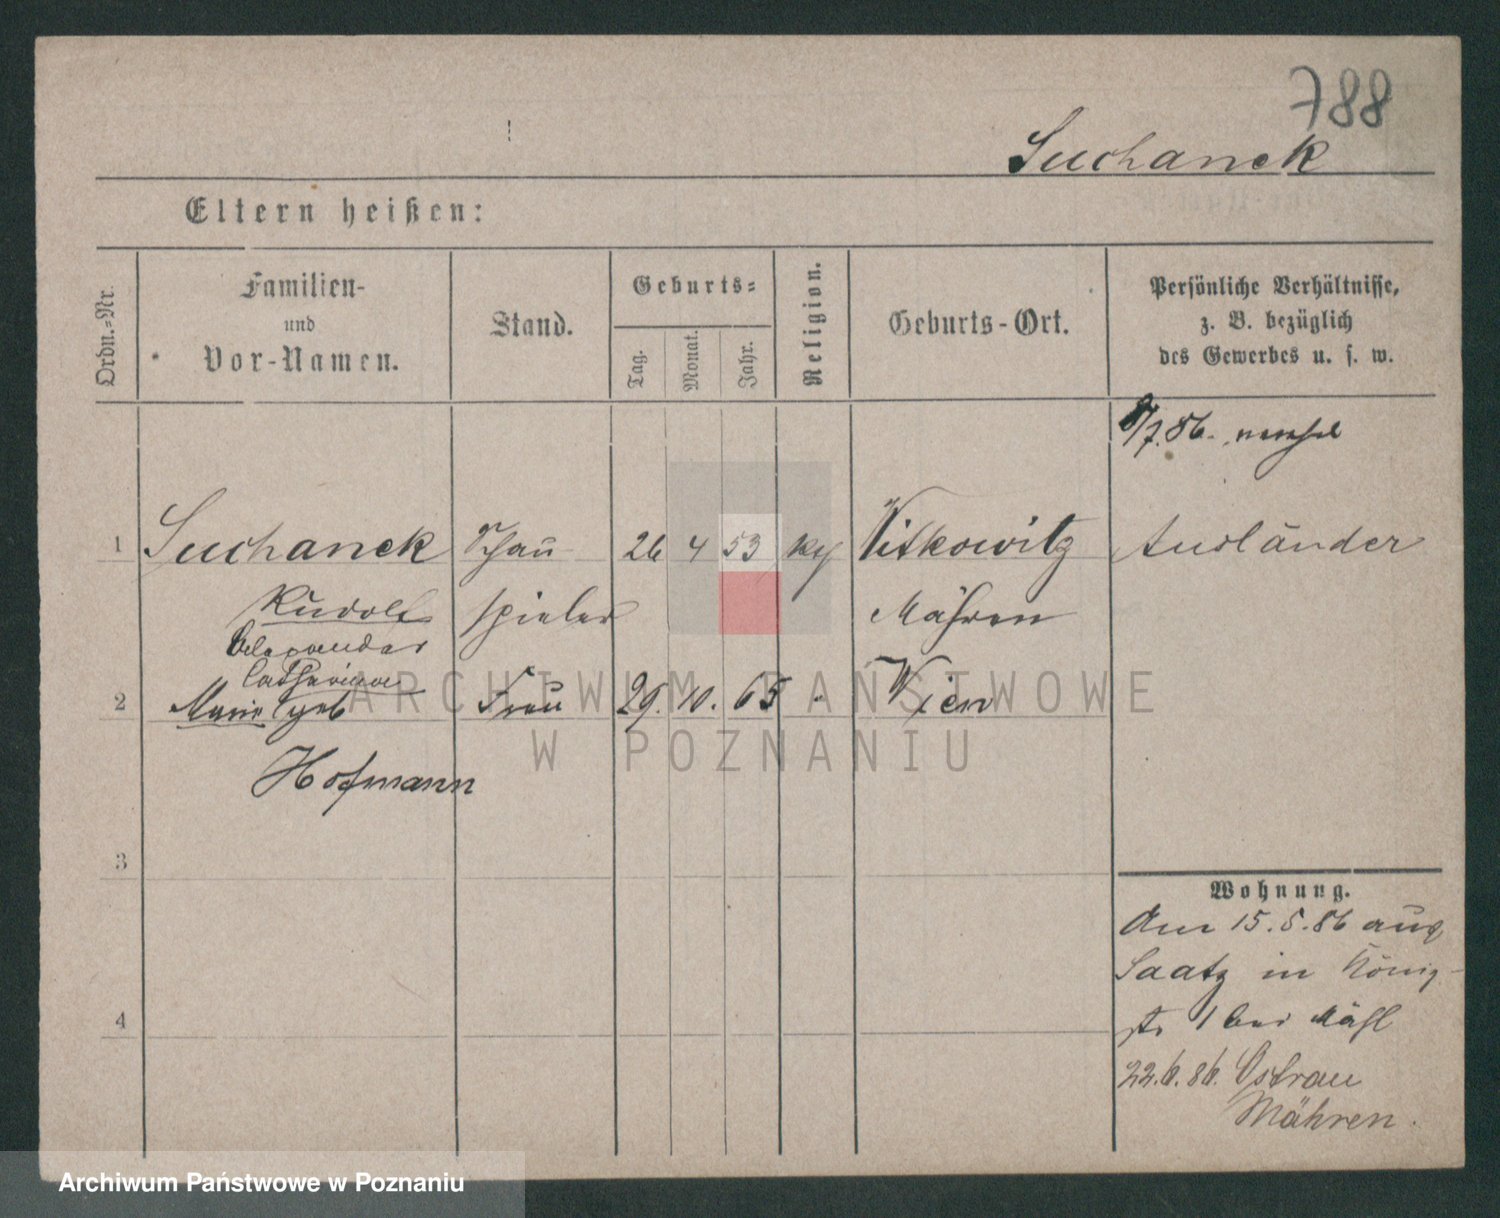 788
Suchanek
Eltern heißen:
Ordn.-Nr.
Familien-
und
Vor-Namen.
Stand.
Geburts-
Tag.
Monat.
Jahr.
Religion.
Geburts-Ort.
Persönliche Verhältnisse,
z. B. bezüglich
des Gewerbes u. s. w.
8/7.86.
1 Suchanek Schau 26 4 53 Witkowitz Ausländer
Rudolf spieler Mähren
Alexander
Catharina
2 Marie geb Frau 29. 10. 65 Wien
Hofmann
3
4
Wohnung.
Am 15.5.86 aus
Saatz in König-
str 1 bei
22.6.86. Ostrau
Mähren.
ARCHIWUM PAŃSTWOWE
W POZNANIU
Archiwum Państwowe w Poznaniu